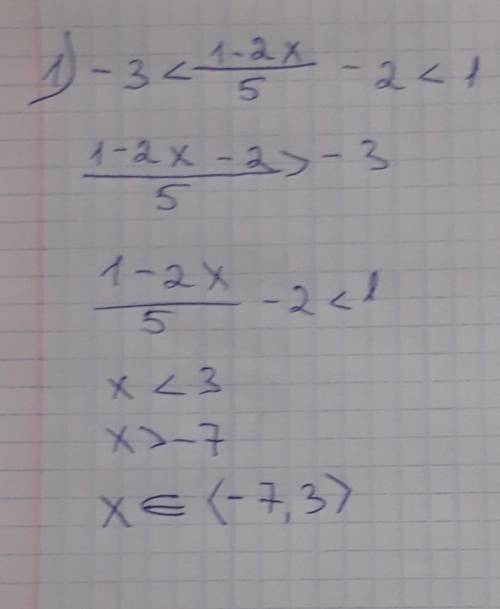 1) -3 < \frac{1-2x}{5} - 2 < 1
\frac{1-2x-2}{5} > -3
\frac{1-2x}{5} - 2 < 1
x < 3
x > -7
x ∈ ⟨-7, 3⟩